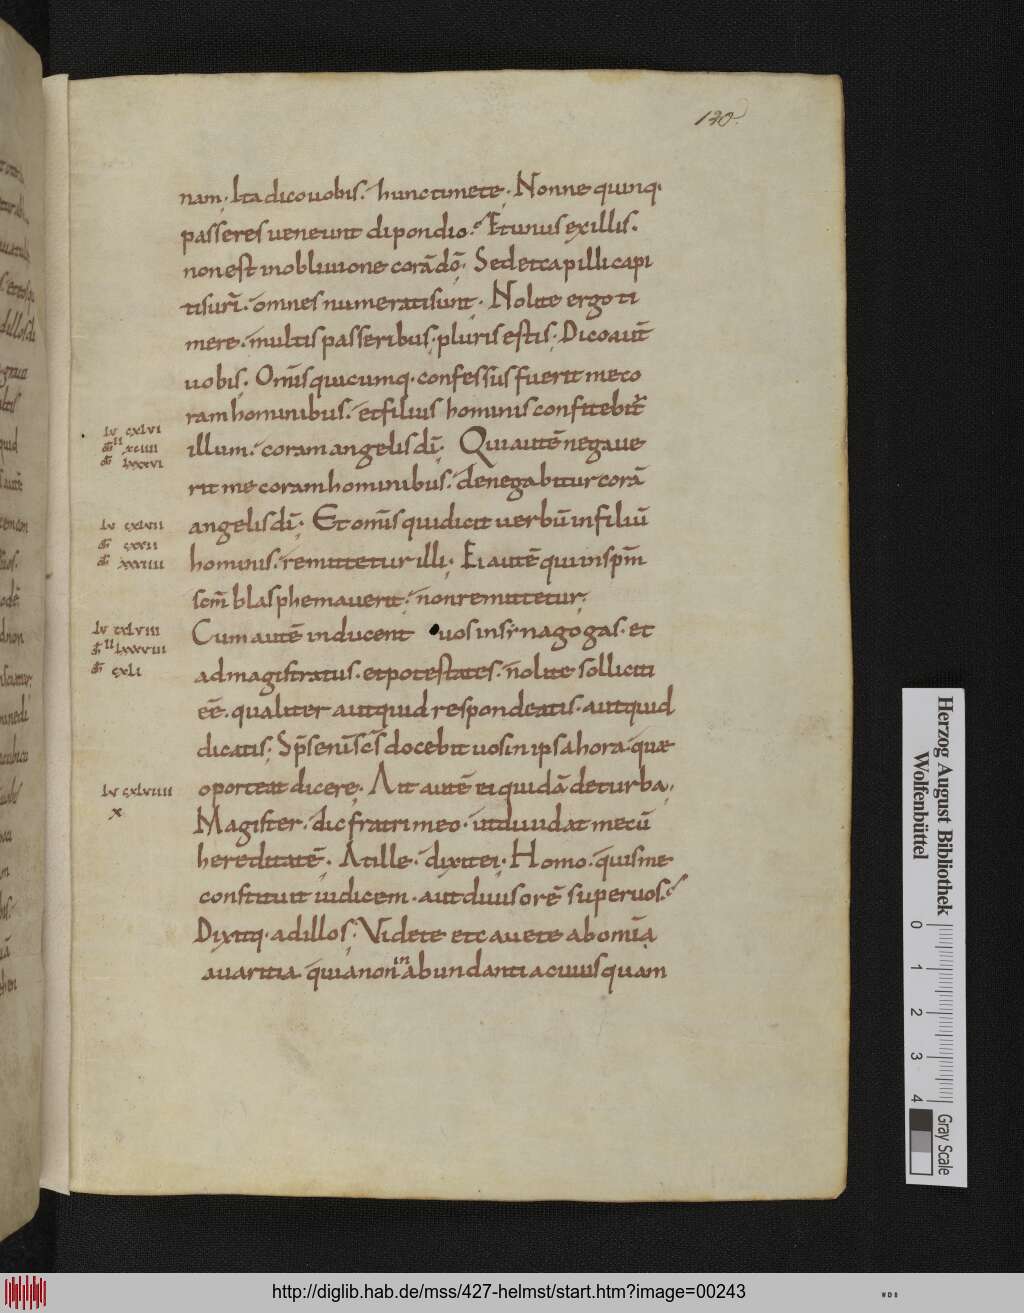 130.
nam; Ita dico uobis. hunc timete; Nonne quinq·
passeres ueneunt dipondio. Et unus ex illis.
non est in obliuione corā dō; Sed et capilli capi
tis ur̄i. omnes numerati sunt; Nolite ergo ti
mere. multis passeribus. pluris estis; Dico aut̄
uobis; Om̄is quicumq· confessus fuerit me co
ram hominibus. et filius hominis confitebit̄
illum. coram angelis dī; Qui autē negaue
rit me coram hominibus. denegabitur corā
angelis dī; Et om̄is qui dicit uerbū in filiū
hominis. remittetur illi; Ei autē qui in sp̄m
scm̄ blasphemauerit. non remittetur;
Cum autē inducent uos in synagogas. et
ad magistratus. et potestates. nolite solliciti
eē. qualiter aut quid respondeatis. aut quid
dicatis; Sp̄s enim sc̄s docebit uos in ipsa hora. quae
oporteat dicere; Ait autē ei quidā de turba;
Magister. dic fratri meo. ut diuidat mecū
hereditatē; At ille. dixit ei; Homo. quis me
constituit iudicem. aut diuisorē super uos.
Dixitq· ad illos; Videte et cauete ab om̄i
auaritia quia non in abundantia cuiusquam
lv cxlvi
xciiii
lxxxvi
lv cxlvii
cxxii
xxxiiii
lv cxlviii
lxxxviii
cxli
lv cxlviiii
x
Herzog August Bibliothek
Wolfenbüttel
0 1 2 3 4
Gray Scale
http://diglib.hab.de/mss/427-helmst/start.htm?image=00243